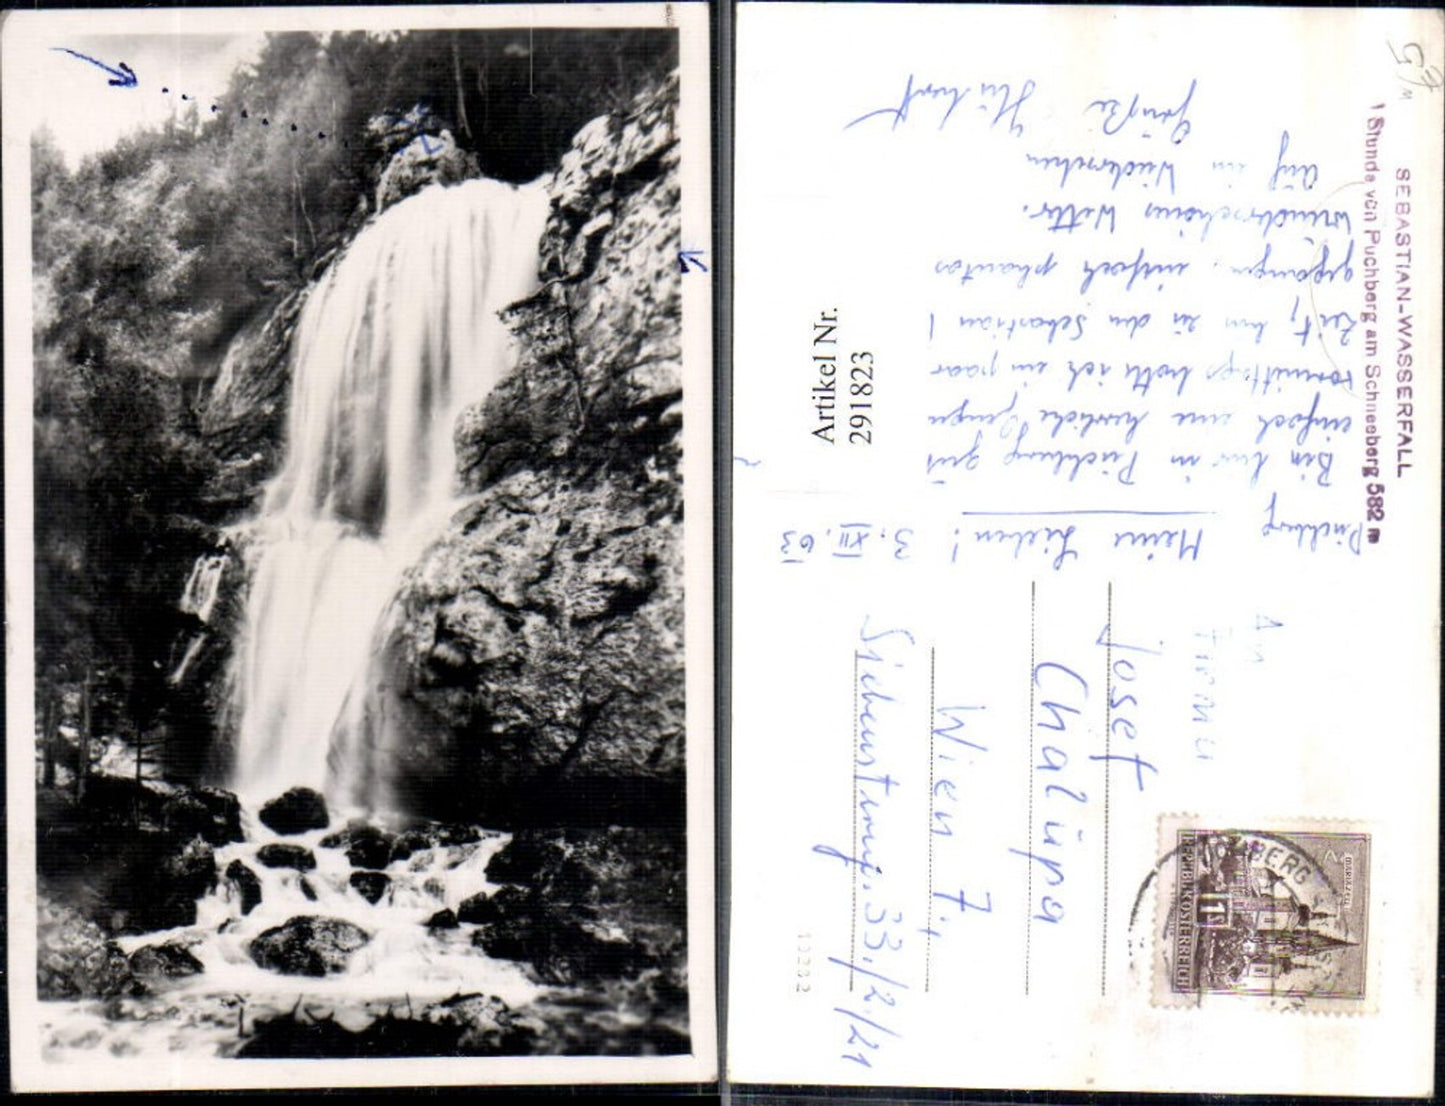 SEBASTIAN-WASSERFALL
1 Stunde von Puchberg am Schneeberg 582 m
Puchberg 3. XII. 63
Meine Lieben!
Bin hier in Puchberg
einfach eine herrliche Gegend
vormittags hatte ich ein paar
Zeit, bin zu den Sebastian
gegangen, einfach phantas
wunderschönes Wetter.
Auf ein Wiedersehen
Grüße Hubert
Artikel Nr.
2918823
An
Firma
Josef
Chalupa
Wien 7.,
Siebensterng. 33/2/21
REPUBLIK ÖSTERREICH
MARIAZELL
1 S
BERG
19232
5